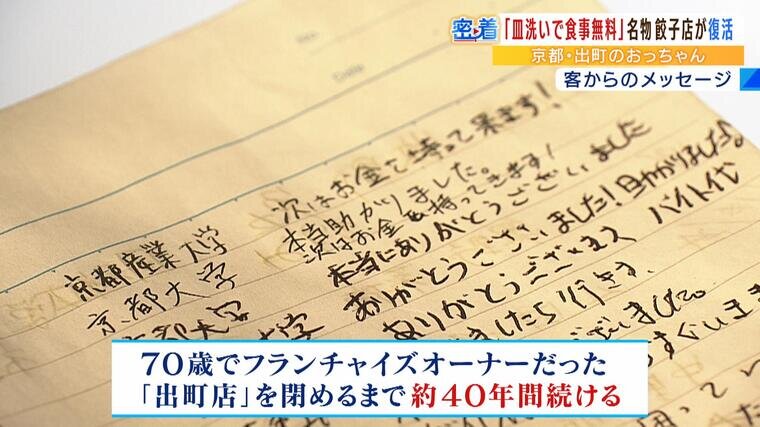 密着
「皿洗いで食事無料」名物 餃子店が復活
京都・出町のおっちゃん
客からのメッセージ
次はお金を持って来ます!
本当助かりました。
次はお金を持ってきます!
京都産業大学 本当にありがとうございました
京都大学 ありがとうございました!
ありがとうございます バイト代
ましたら行きます。
70歳でフランチャイズオーナーだった
「出町店」を閉めるまで 約40年間続ける